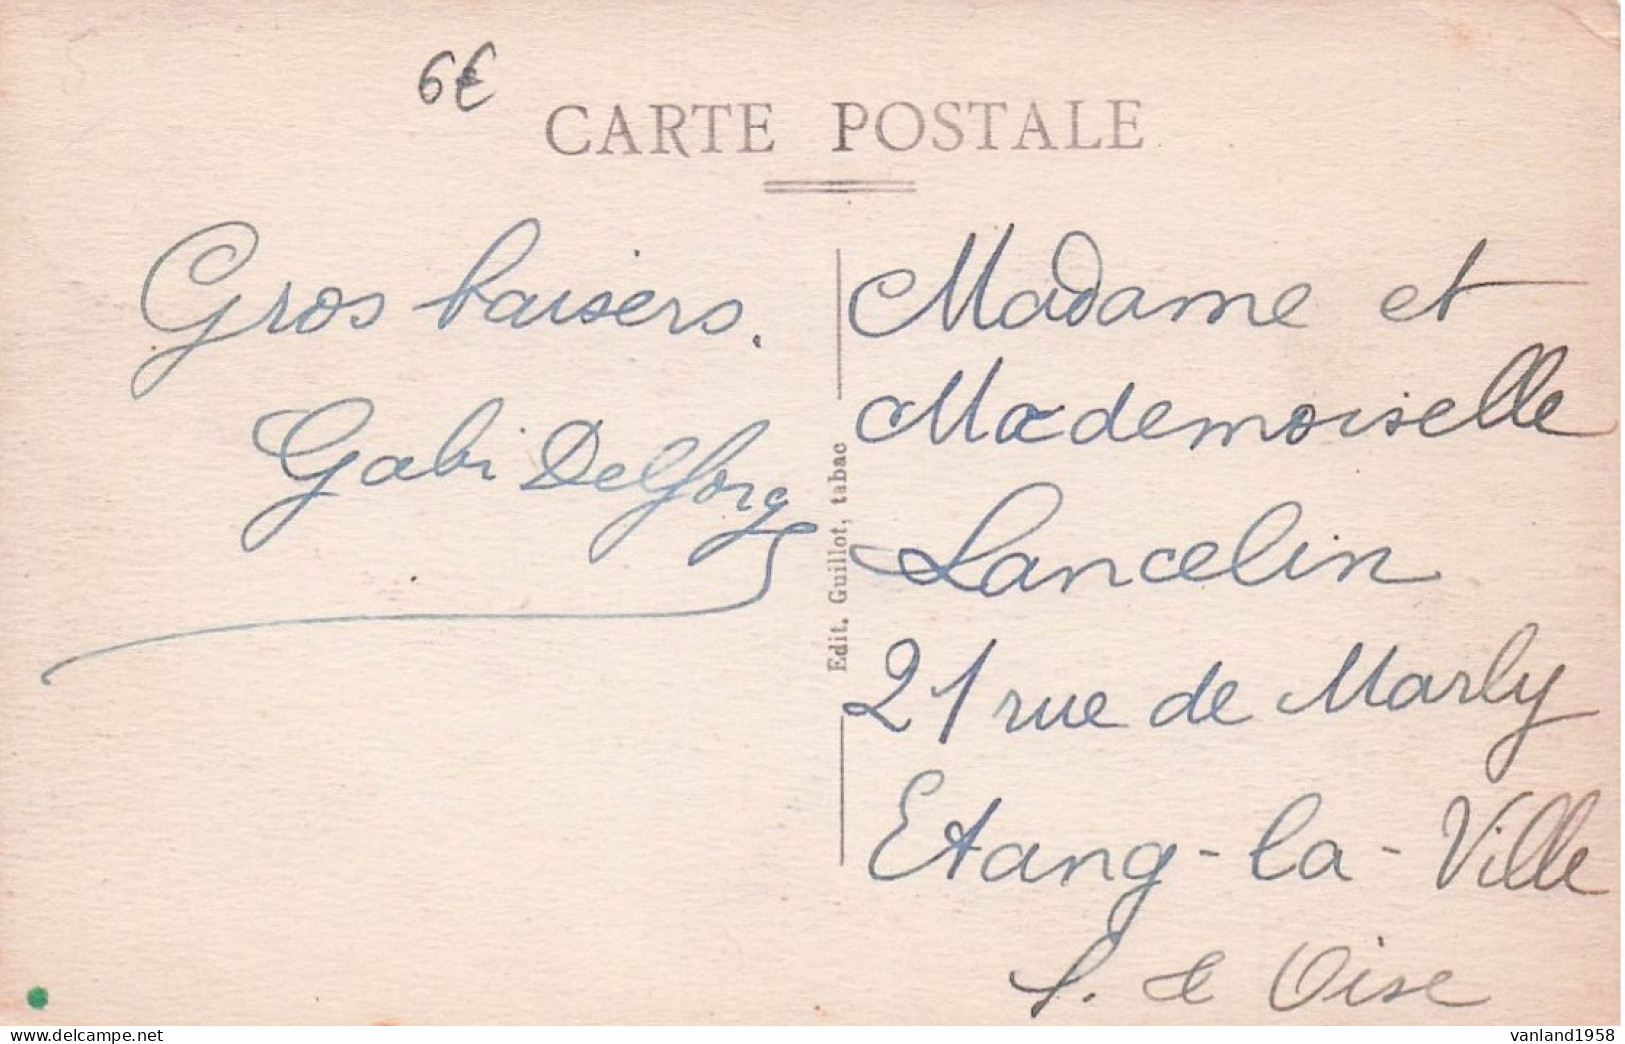 6€
CARTE POSTALE
Gros baisers.
Gabi Delforg
Edit. Guillot, tabac
Madame et
Mademoiselle
Lancelin
21 rue de Marly
Etang-la-Ville
S. et Oise
www.delcampe.net
vanland1958